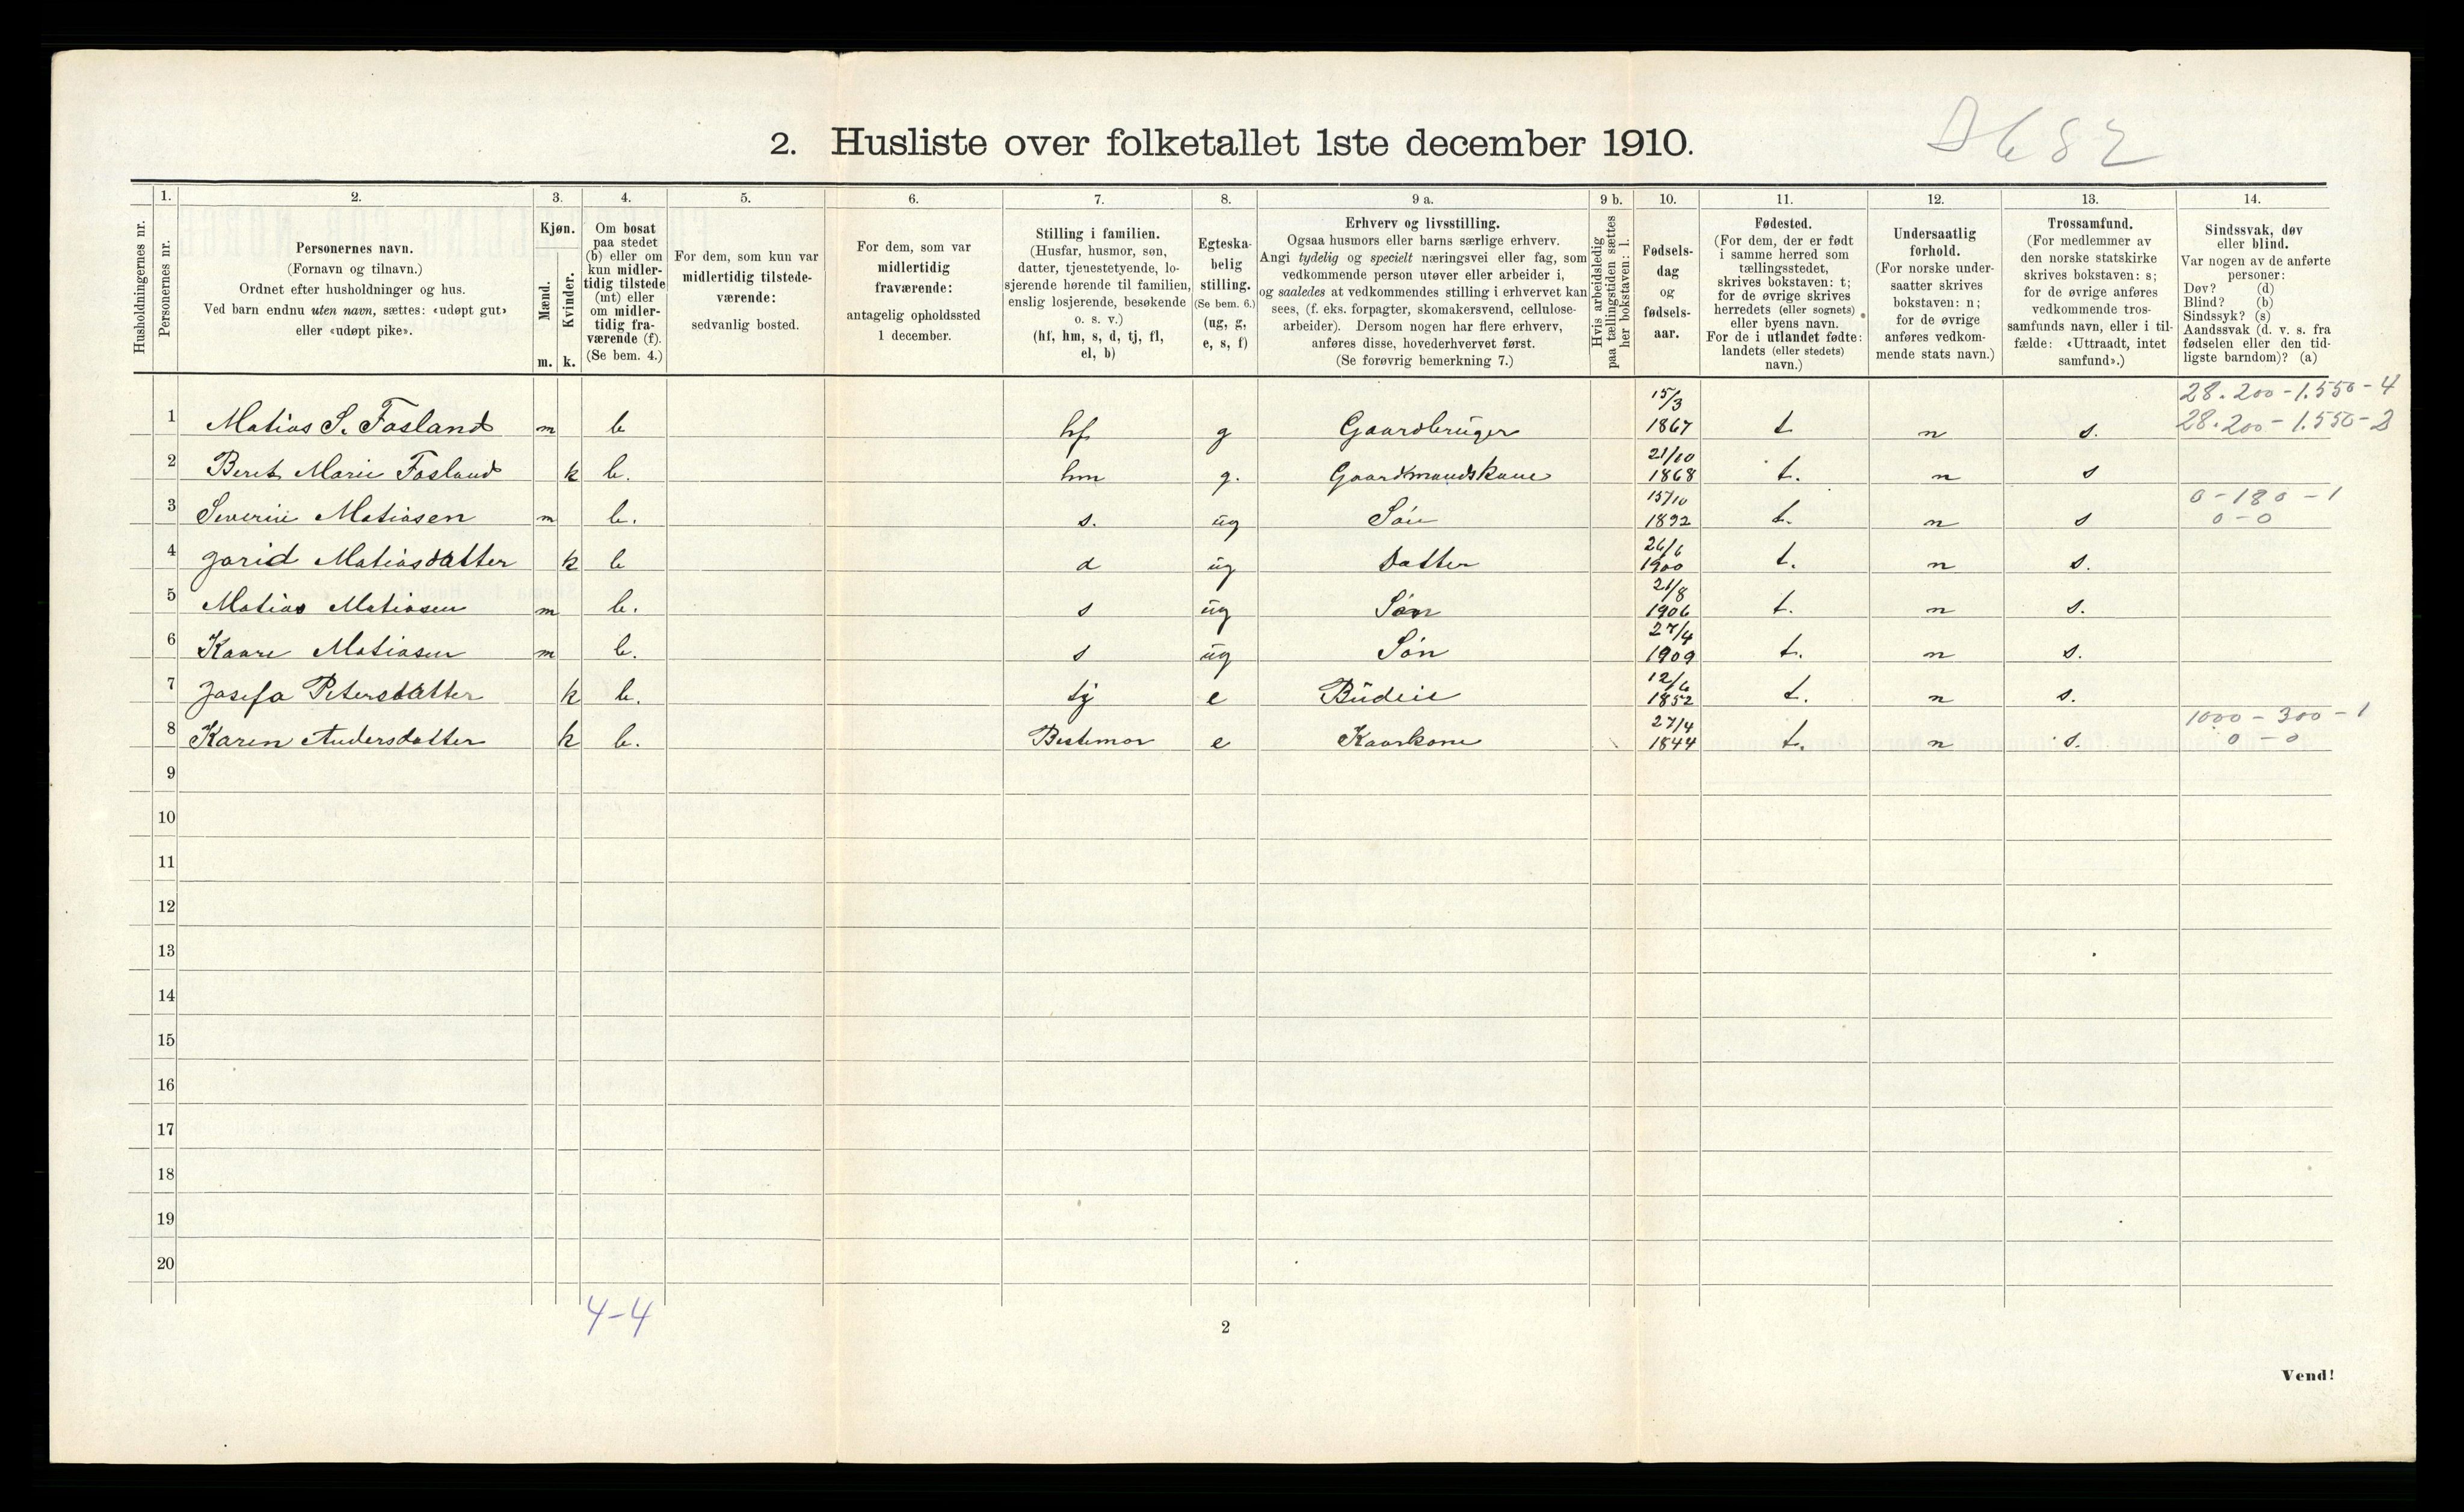 2. Husliste over folketallet 1ste december 1910.
Husholdningernes nr.
1. Personernes nr.
2. Personernes navn.
(Fornavn og tilnavn.)
Ordnet efter husholdninger og hus.
Ved barn endnu uten navn, sættes: «udøpt gut»
eller «udøpt pike».
3. Kjøn.
Mænd. m.
Kvinder. k.
4. Om bosat
paa stedet
(b) eller om
kun midler-
tidig tilstede
(mt) eller
om midler-
tidig fra-
værende (f).
(Se bem. 4.)
5. For dem, som kun var
midlertidig tilstede-
værende:
sedvanlig bosted.
6. For dem, som var
midlertidig
fraværende:
antagelig opholdssted
1 december.
7. Stilling i familien.
(Husfar, husmor, søn,
datter, tjenestetyende, lo-
sjerende hørende til familien,
enslig losjerende, besøkende
o. s. v.)
(hf, hm, s, d, tj, fl,
el, b)
8. Egteska-
belig
stilling.
(Se bem. 6.)
(ug, g,
e, s, f)
9 a. Erhverv og livsstilling.
Ogsaa husmors eller barns særlige erhverv.
Angi tydelig og specielt næringsvei eller fag, som
vedkommende person utøver eller arbeider i,
og saaledes at vedkommendes stilling i erhvervet kan
sees, (f. eks. forpagter, skomakersvend, cellulose-
arbeider). Dersom nogen har flere erhverv,
anføres disse, hovederhvervet først.
(Se forøvrig bemerkning 7.)
9 b. Hvis arbeidsledig
paa tællingstiden sættes
her bokstaven: l.
10. Fødsels-
dag
og
fødsels-
aar.
11. Fødested.
(For dem, der er født
i samme herred som
tællingsstedet,
skrives bokstaven: t;
for de øvrige skrives
herredets (eller sognets)
eller byens navn.
For de i utlandet fødte:
landets (eller stedets)
navn.)
12. Undersaatlig
forhold.
(For norske under-
saatter skrives
bokstaven: n;
for de øvrige
anføres vedkom-
mende stats navn.)
13. Trossamfund.
(For medlemmer av
den norske statskirke
skrives bokstaven: s;
for de øvrige anføres
vedkommende tros-
samfunds navn, eller i til-
fælde: «Uttraadt, intet
samfund».)
14. Sindssvak, døv
eller blind.
Var nogen av de anførte
personer:
Døv? (d)
Blind? (b)
Sindssyk? (s)
Aandssvak (d. v. s. fra
fødselen eller den tid-
ligste barndom)? (a)
28.200-1.550-4
1 Matias S. Fosland m b hf g Gaardbruger 15/3 1867 t. n s. 28.200-1.550-2
2 Beret Marie Fosland k b. hm g. Gaardmandskone 21/10 1868 t. n s
0-180-1
3 Severin Matiasen m b. s. ug Søn 15/10 1892 t. n s 0-0
4 Jorid Matiasdatter k b d ug Datter 26/6 1900 t. n s.
5 Matias Matiasen m b. s ug Søn 21/8 1906 t. n s.
6 Kaare Matiasen m b. s ug Søn 27/4 1909 t. n s.
7 Josefa Petersdatter k b. tj e Budeie 12/6 1852 t. n s.
1000-300-1
8 Karen Andersdatter k b. Bestemor e Kaarkone 27/4 1844 t. n s. 0-0
9
10
11
12
13
14
15
16
17
18
19
20
4-4
2
Vend!